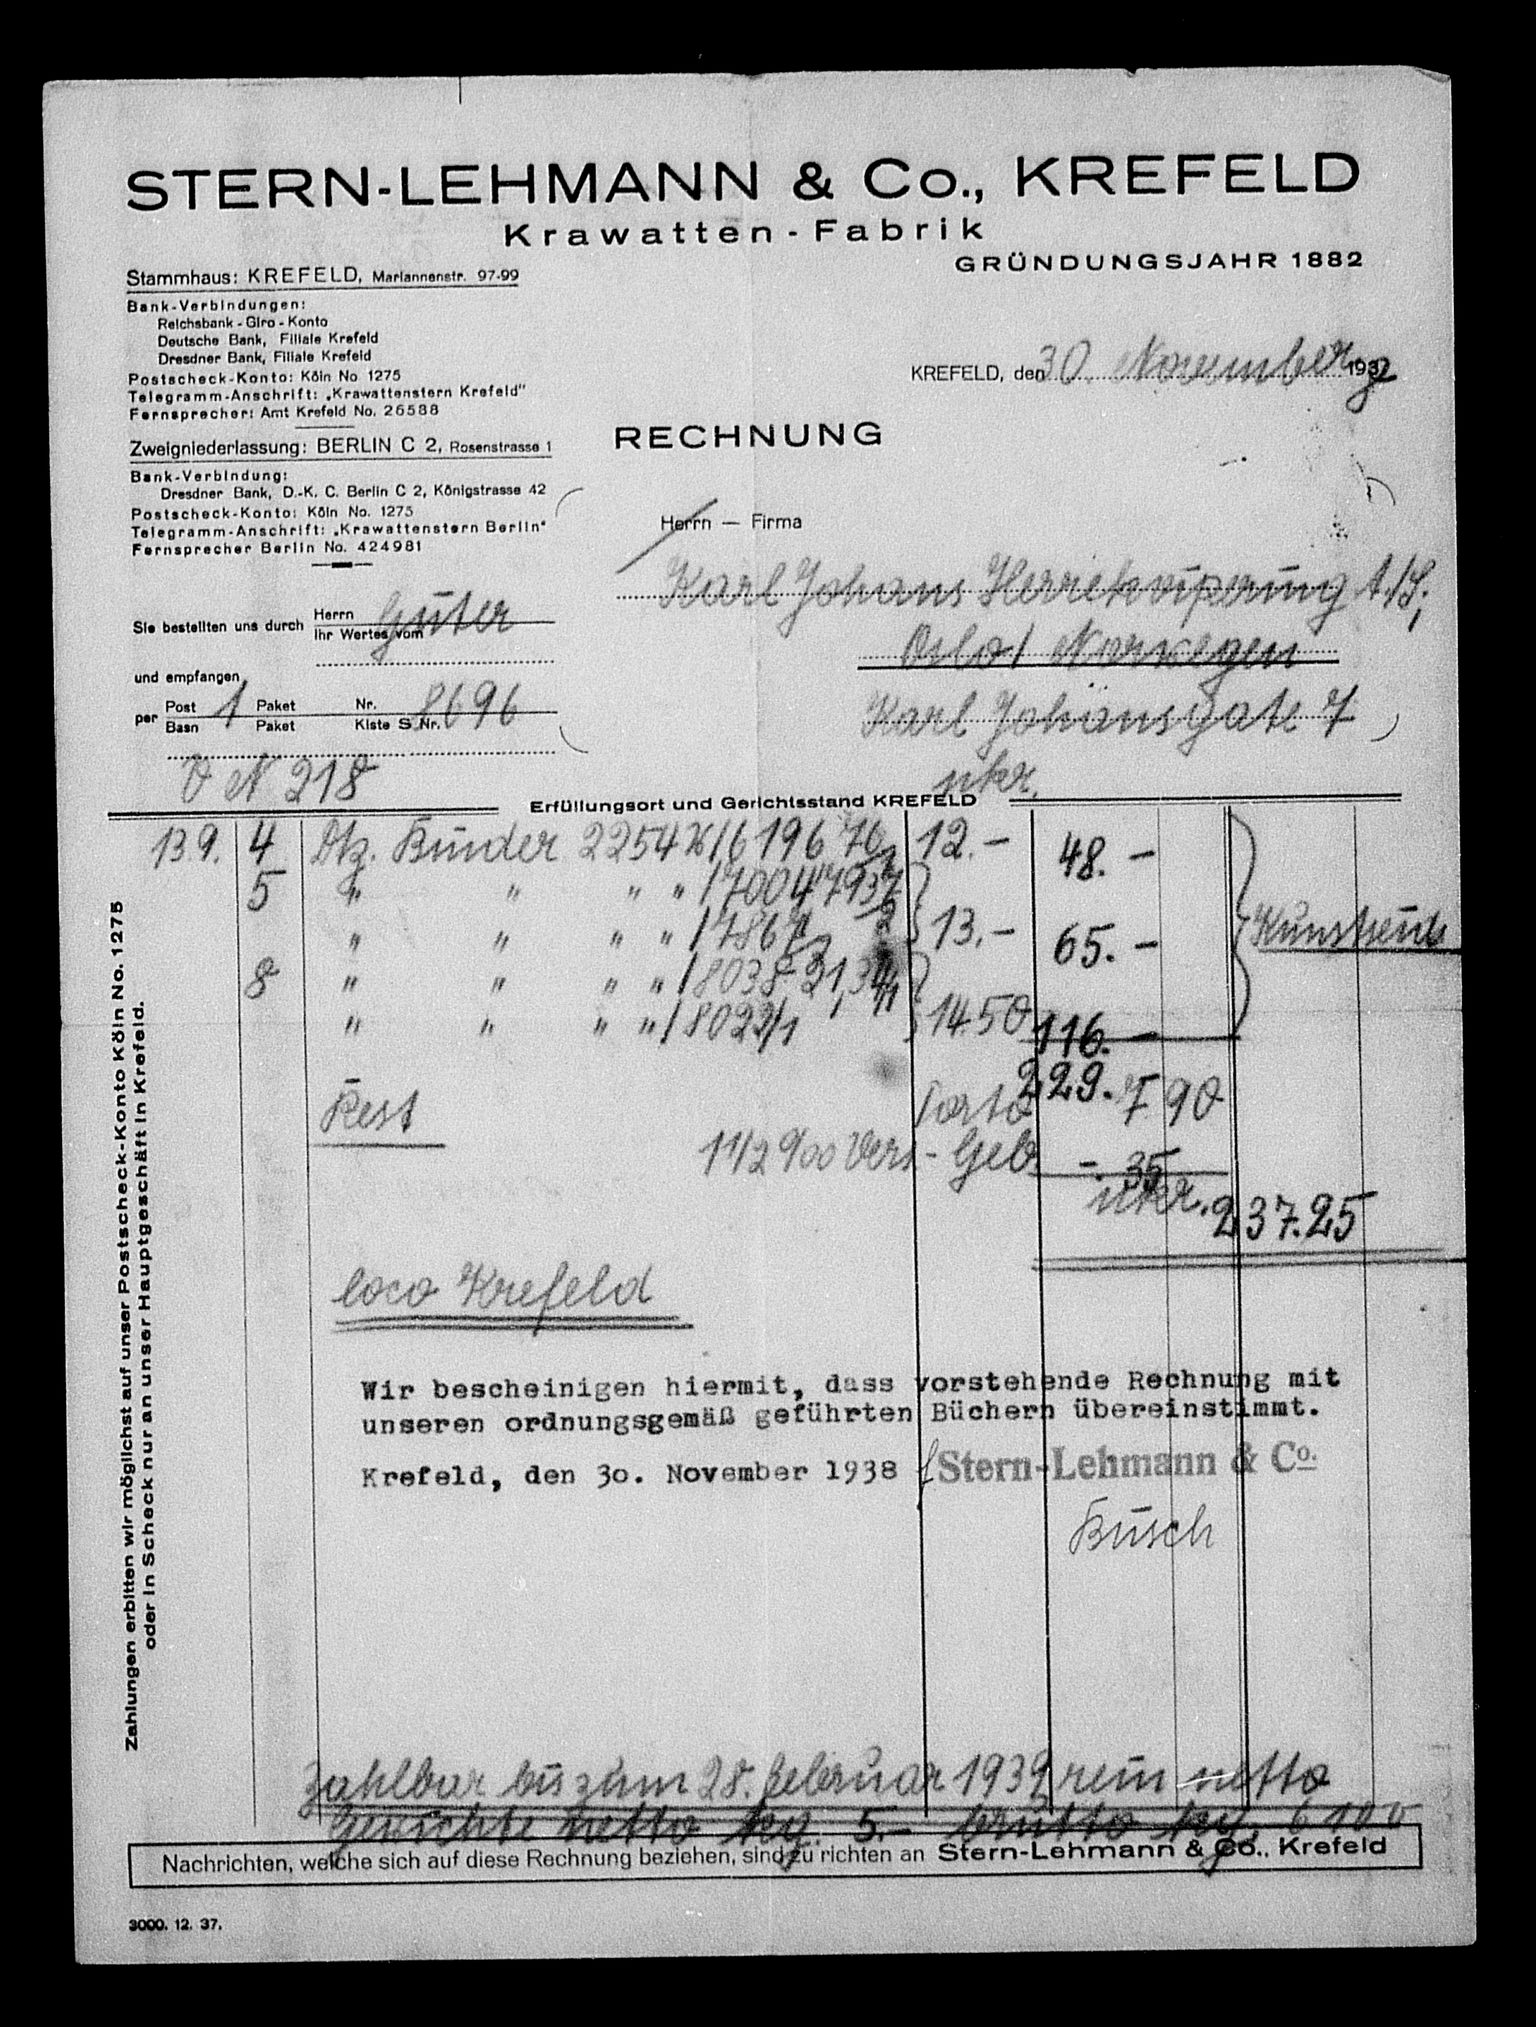 STERN-LEHMANN & Co., KREFELD
Krawatten-Fabrik
GRÜNDUNGSJAHR 1882
Stammhaus: KREFELD, Mariannenstr. 97-99
Bank-Verbindungen:
Reichsbank-Giro-Konto
Deutsche Bank, Filiale Krefeld
Dresdner Bank, Filiale Krefeld
Postscheck-Konto: Köln No 1275
Telegramm-Anschrift: „Krawattenstern Krefeld"
Fernsprecher: Amt Krefeld No. 26588
KREFELD, den 30. November 193
Zweigniederlassung: BERLIN C 2, Rosenstrasse 1
Bank-Verbindung:
Dresdner Bank, D.-K. C. Berlin C 2, Königstrasse 42
Postscheck-Konto: Köln No. 1275
Telegramm-Anschrift: „Krawattenstern Berlin"
Fernsprecher Berlin No. 424981
RECHNUNG
Herrn — Firma
Karl Johans Herrekvipering A./S.,
Oslo / Norwegen
Karl Johansgate 7
Sie bestellten uns durch Herrn Güter
Ihr Wertes vom
und empfangen
per Post 1 Paket Nr. 8696
Bahn Paket Kiste S Nr.
O N 218
nkr.
Erfüllungsort und Gerichtsstand KREFELD
13.9. 4 Dtz. Binder 2254 12.- 48.-
5 " " " " 13.- 65.- Kunstseide
" " " "
8 " " " "
" " " " 14.50 116.-
229.-
Rest Porto 7.90
1 1/2 ‰ Vers.-Geb. -.35
nkr. 237.25
loco Krefeld
Wir bescheinigen hiermit, dass vorstehende Rechnung mit
unseren ordnungsgemäß geführten Büchern übereinstimmt.
Krefeld, den 30. November 1938
Stern-Lehmann & Co.
Busch
zahlbar bis zum 28. Februar 1939 rein netto
Gewichte netto kg. 5.- brutto kg. 6100
Nachrichten, welche sich auf diese Rechnung beziehen, sind zu richten an Stern-Lehmann & Co., Krefeld
3000. 12. 37.
Zahlungen erbitten wir möglichst auf unser Postscheck-Konto Köln No. 1275
oder in Scheck nur an unser Hauptgeschäft in Krefeld.